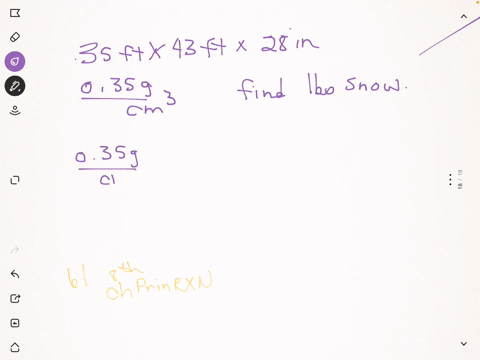 35 ft X 43 ft x 28 in
0.35g
cm3
find lbs snow.
0.35g
c
b) 8th
ch Prin RXN
18 / 18